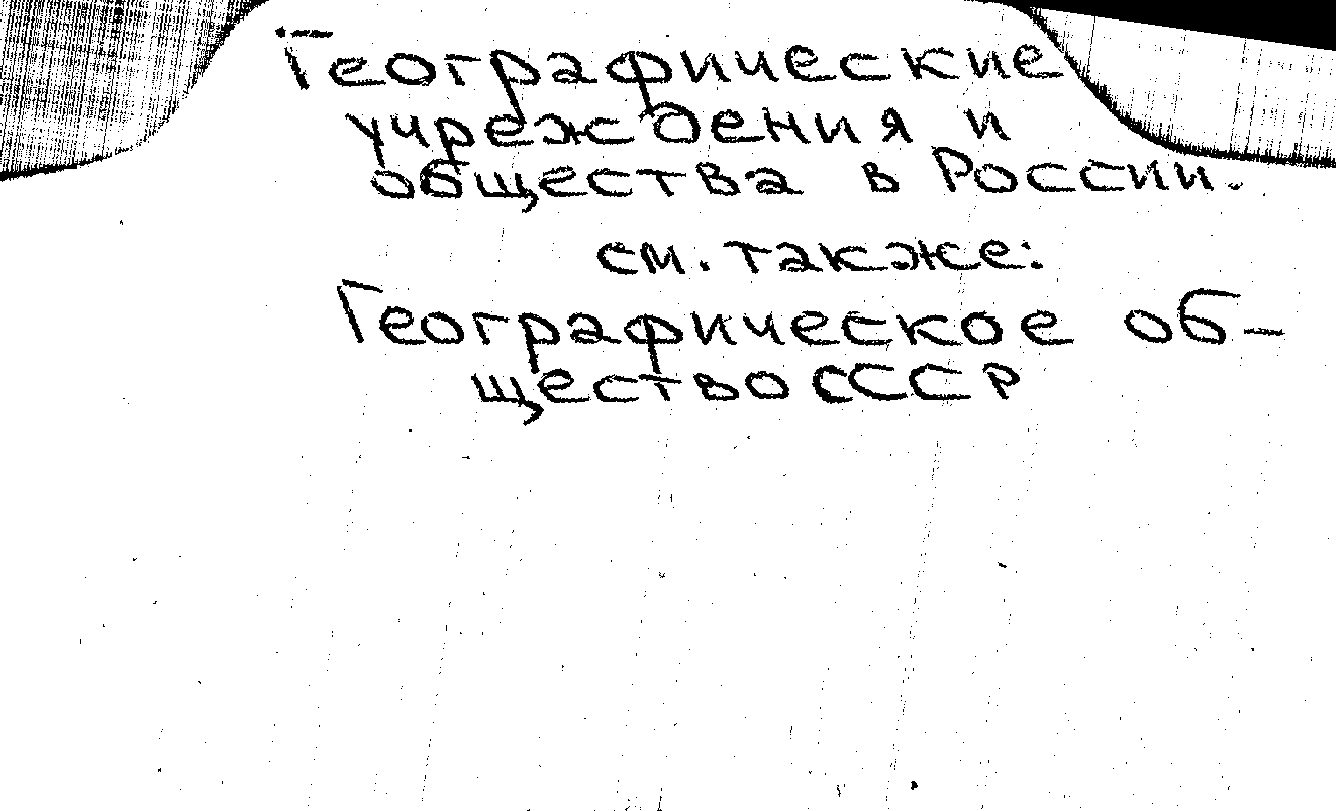 Географические
учреждения и
общества в России.
см. также:
Географическое об-
щество СССР